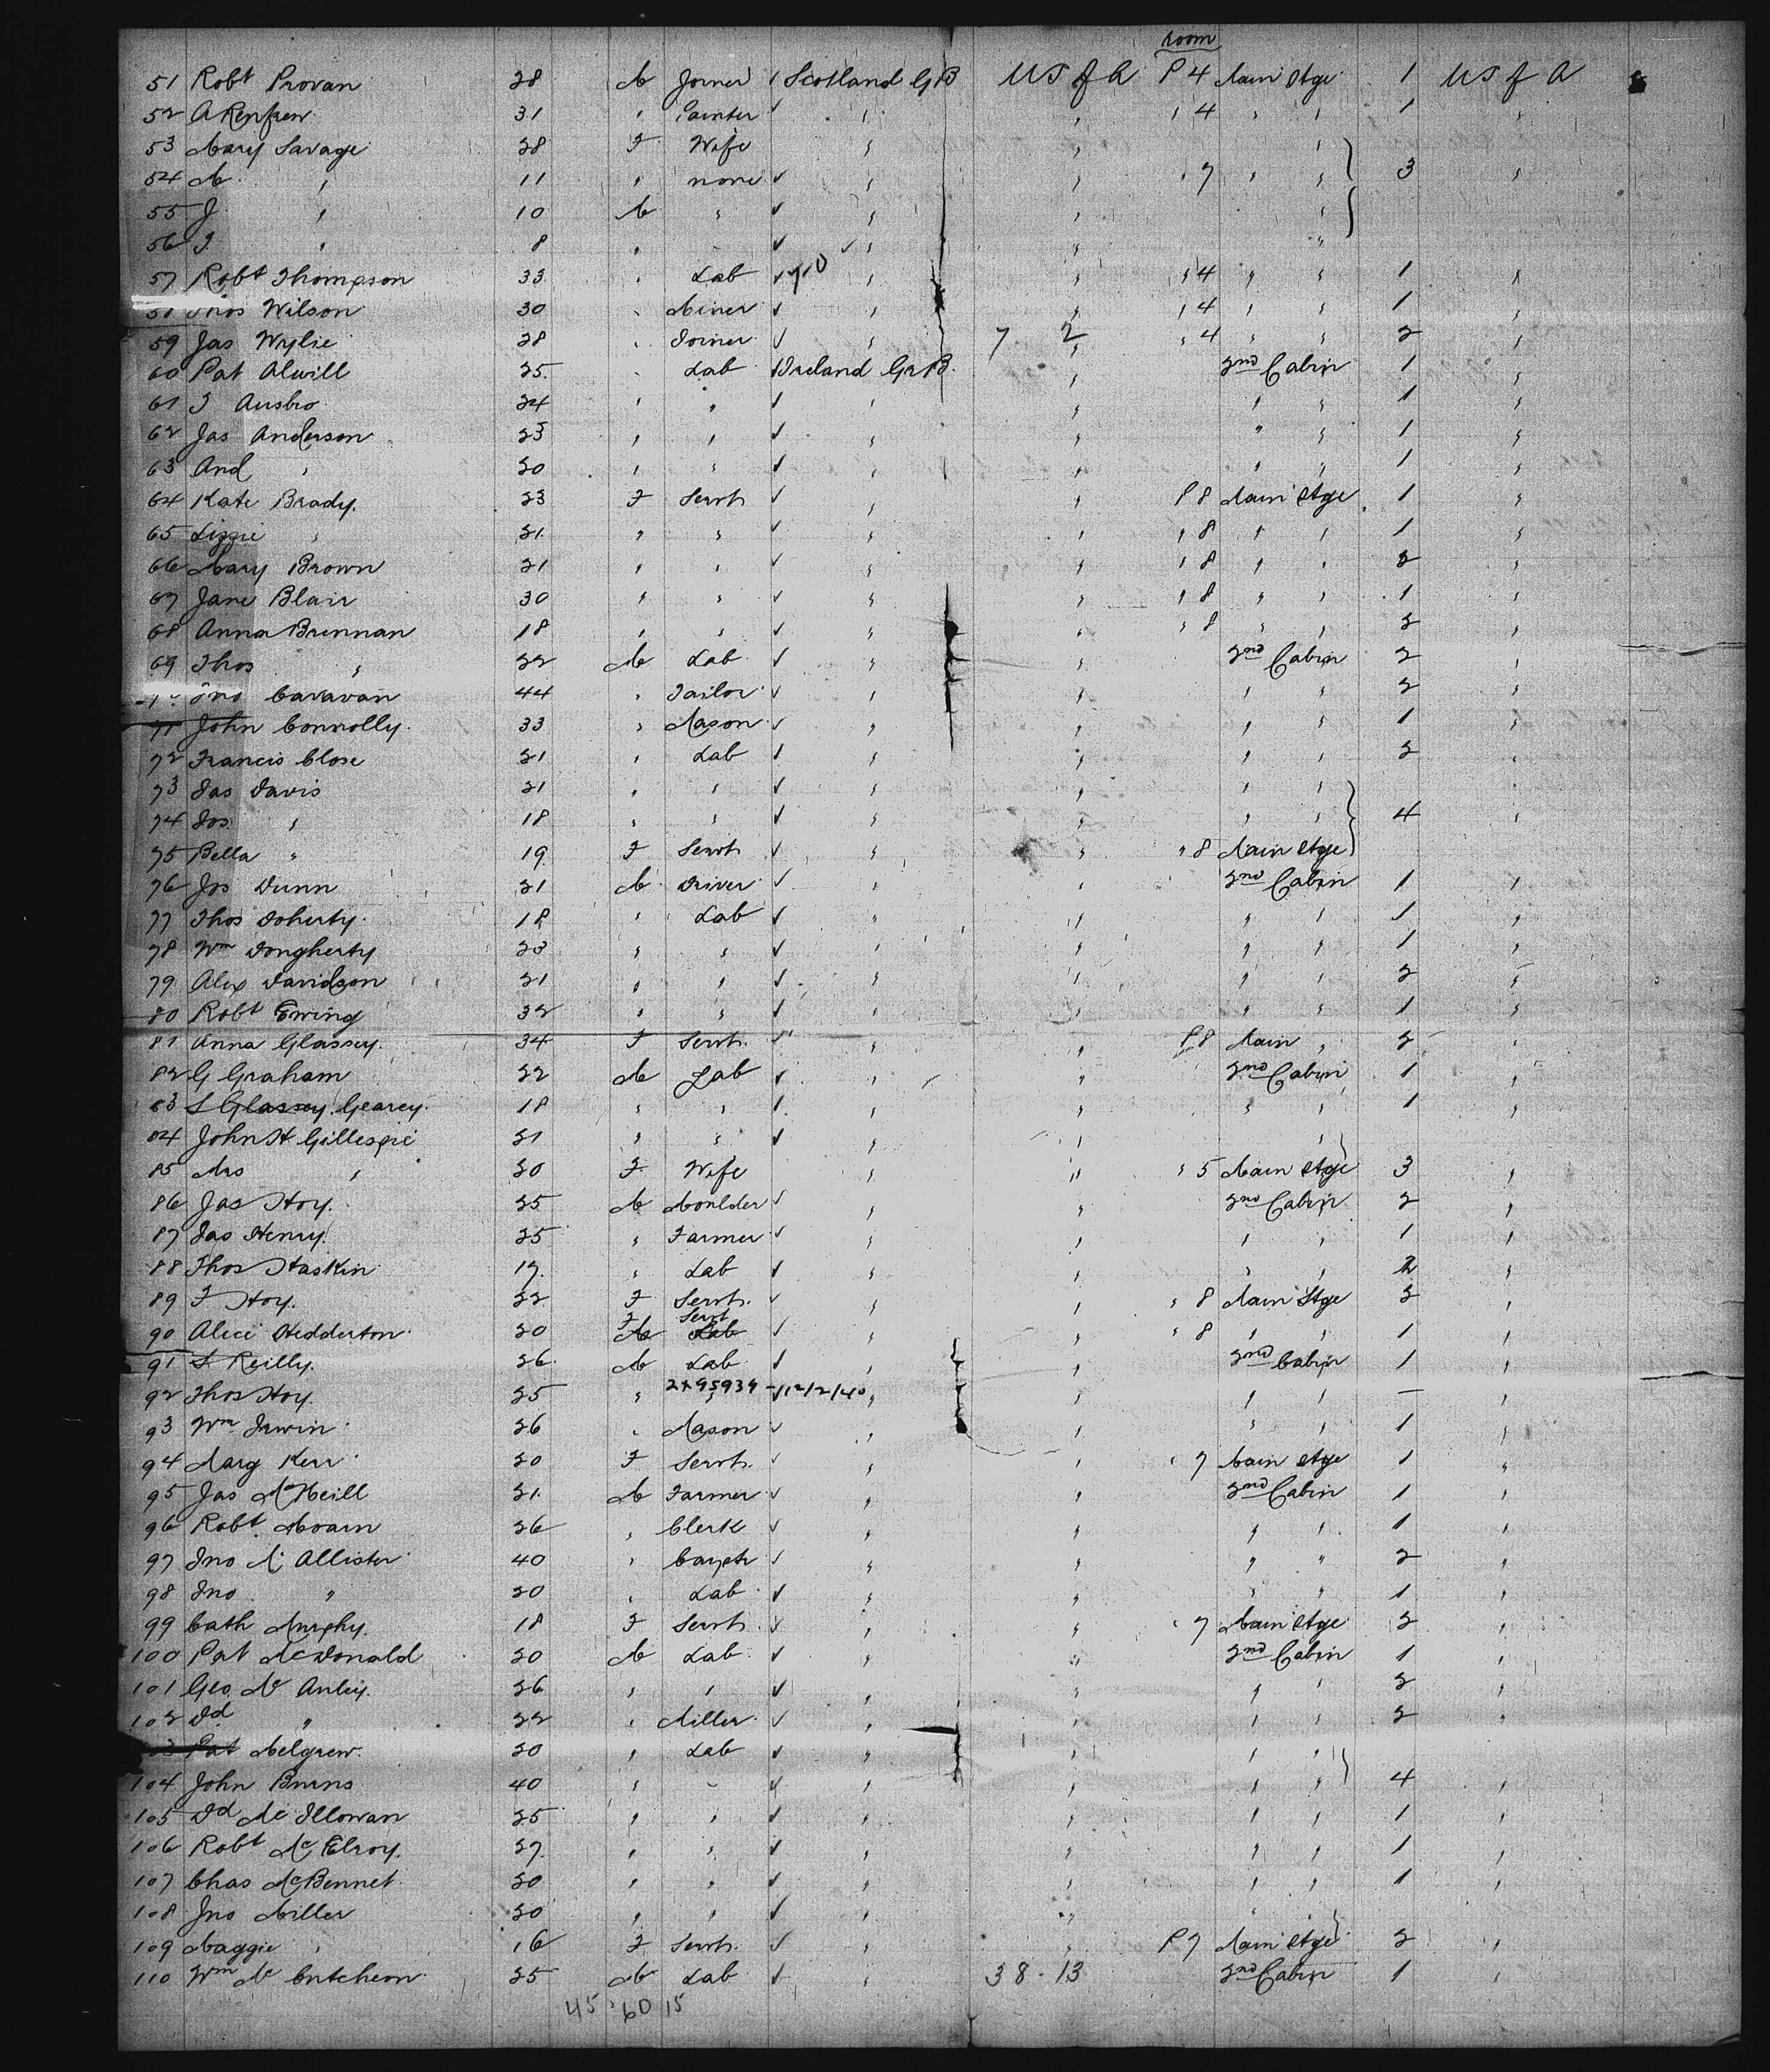 room
51 Robt Provan 28 M Joiner Scotland G B U S of A P 4 Main Stge 1 U S of A
52 A Renfrew 31 " Painter ✓ " " " 4 " " 1 "
53 Mary Savage 28 F Wife " " "
54 M " 11 " none ✓ " " " 7 " " 3 "
55 J " 10 M " ✓ " " "
56 J " 8 " - ✓ ✓ " " "
57 Robt Thompson 33 " Lab ✓ " " " 4 " " 1 "
58 Thos Wilson 30 " Miner ✓ " " " 4 " " 1 "
59 Jas Wylie 28 " Joiner ✓ " 7 2 " " 4 " " 2 "
60 Pat Alwill 25 " Lab Ireland Gr B. " 2nd Cabin 1 "
61 J Ausbro 24 " " ✓ " " " " 1 "
62 Jas Anderson 23 " " ✓ " " " " 1 "
63 And " 20 " " ✓ " " " " 1 "
64 Kate Brady. 23 F Servt ✓ " " P 8 Main Stge 1 "
65 Lizzie " 21 " " ✓ " " " 8 " " 1 "
66 Mary Brown 21 " " ✓ " " " 8 " " 2 "
67 Jane Blair 30 " " ✓ " " " 8 " " 1 "
68 Anna Brennan 18 " " ✓ " " " 8 " " 2 "
69 Thos " 22 M Lab ✓ " " 2nd Cabin 2 "
Jno Caravan 44 " Tailor ✓ " " " " 2 "
71 John Connolly 33 " Mason ✓ " " " " 1 "
72 Francis Close 21 " Lab ✓ " " " " 2 "
73 Jas Davis 21 " " ✓ " " " "
74 Jos " 18 " " ✓ " " " " 4 "
75 Bella " 19 F Servt ✓ " " " 8 Main Stge
76 Jos Dunn 21 M Driver ✓ " " 2nd Cabin 1 "
77 Thos Doherty 18 " Lab ✓ " " " " 1 "
78 Wm Dougherty 23 " " ✓ " " " " 1 "
79 Alex Davidson 21 " " ✓ " " " " 2 "
80 Robt Ewing 32 " " ✓ " " " " 1 "
81 Anna Glassey. 34 F Servt. ✓ " " P8 Main " 2 "
82 G Graham 22 M Lab ✓ " " 2nd Cabin 1 "
83 S Glassey. Gearey. 18 " " ✓ " " " " 1 "
84 John H Gillespie 21 " " ✓ " " "
85 Mrs " 20 F Wife " " " 5 Main Stge 3 "
86 Jas Hoy. 25 M Moulder ✓ " " 2nd Cabin 2 "
87 Jas Henry. 25 " Farmer ✓ " " " " 1 "
88 Thos Haskin 19 " Lab ✓ " " " " 2 "
89 F Hoy. 22 F Servt. ✓ " " " 8 Main Stge 2 "
F Servt
90 Alice Hedderton 20 M Lab ✓ " " " 8 " " 1 "
91 S Reilly. 26 M Lab ✓ " " 2nd Cabin 1 "
92 Thos Hoy. 25 " 2x95939 - 12/2/40 " " " " — "
93 Wm Irwin 26 " Mason ✓ " " " " 1 "
94 Marg Kerr 20 F Servt. ✓ " " " 7 Main Stge 1 "
95 Jas McNeill 21 M Farmer ✓ " " 2nd Cabin 1 "
96 Robt Moain 26 " Clerk ✓ " " " " 1 "
97 Jno Mc Allister 40 " Carptr ✓ " " " " 2 "
98 Jno " 20 " Lab ✓ " " " " 1 "
99 Cath Murphy. 18 F Servt. ✓ " " " 7 Main Stge 2 "
100 Pat McDonald 20 M Lab ✓ " " 2nd Cabin 1 "
101 Geo Mc Auley. 26 " " ✓ " " " " 2 "
102 Dd " 22 " Miller ✓ " " " " 2 "
103 Pat Melgrew. 20 " Lab ✓ " " " "
104 John Burns 40 " - ✓ " " " " 4 "
105 Dd Mc Illowan 25 " " ✓ " " " " 1 "
106 Robt Mc Elroy. 27 " " ✓ " " " " 1 "
107 Chas McBennet 20 " " ✓ " " " " 1 "
108 Jno Miller 20 " " ✓ " " " "
109 Maggie " 16 F Servt. ✓ " " P 7 Main Stge 2 "
110 Wm Mc Cutcheon 25 M Lab ✓ " 38 - 13 2nd Cabin 1 "
45 60 15